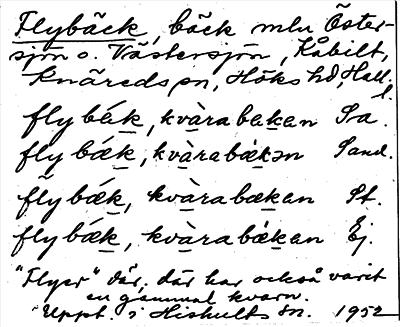 Flybäck, bäck mlu Öster-
sjön o. Västersjön, Kåbilt,
Knäreds sn, Höks hd, Hall.
flybæ̀k, kvàrabækan Sa.
flybæ̀k, kvàrabækən Sand.
flybæ̀k, kvàrabækan St.
flybæ̀k, kvàrabækan Ej.
"Flyer" där, där har också varit
en gammal kvarn.
Uppt. i Hishults sn. 1952